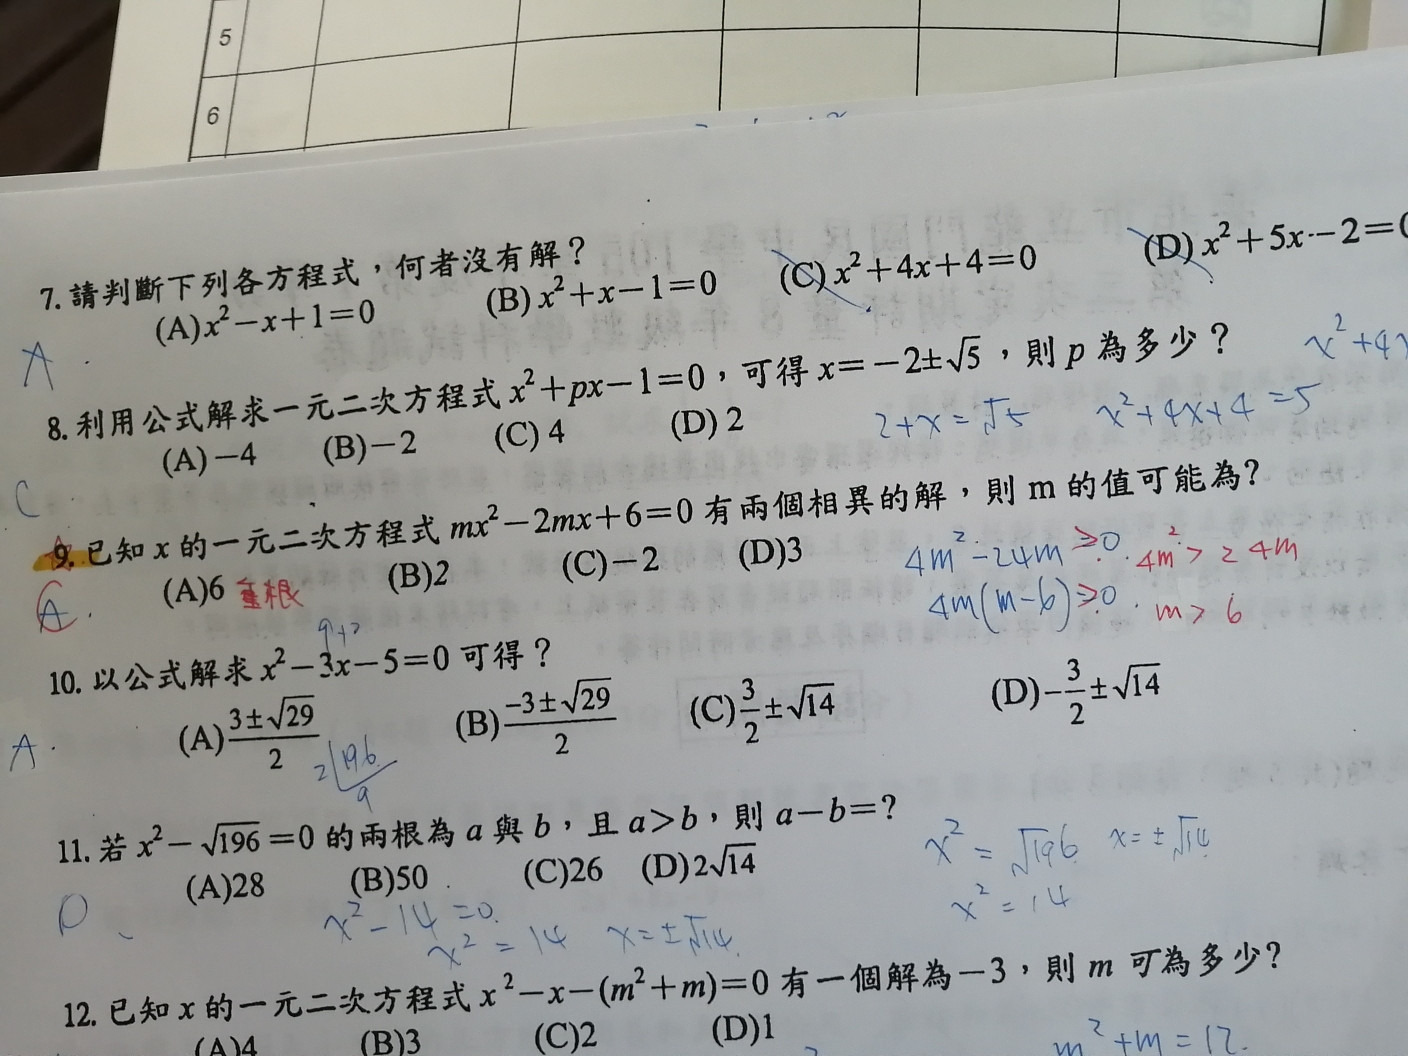 5
6
7. 請判斷下列各方程式，何者沒有解？
(A) x²－x＋1＝0 (B) x²＋x－1＝0 (C) x²＋4x＋4＝0 (D) x²＋5x－2＝0
A
8. 利用公式解求一元二次方程式 x²＋px－1＝0，可得 x＝－2±√5，則 p 為多少？
x²+4x
(A)－4 (B)－2 (C) 4 (D) 2
2+x=√5 x²+4x+4=5
C
9. 已知 x 的一元二次方程式 mx²－2mx＋6＝0 有兩個相異的解，則 m 的值可能為?
(A)6 重根 (B)2 (C)－2 (D)3
4m²-24m≥0. 4m²>24m
4m(m-6)≥0. m>6
A.
C
9+2
10. 以公式解求 x²－3x－5＝0 可得？
(A) (3±√29)/2 (B) (－3±√29)/2 (C) 3/2±√14 (D)－3/2±√14
A.
2 196
9
11. 若 x²－√196＝0 的兩根為 a 與 b，且 a>b，則 a－b＝?
(A)28 (B)50 (C)26 (D) 2√14
x²=√196 x=±√14
x²=14
D
x²-14=0.
x²=14 x=±√14.
12. 已知 x 的一元二次方程式 x²－x－(m²＋m)＝0 有一個解為－3，則 m 可為多少？
(A)4 (B)3 (C)2 (D)1
m²+m=12.